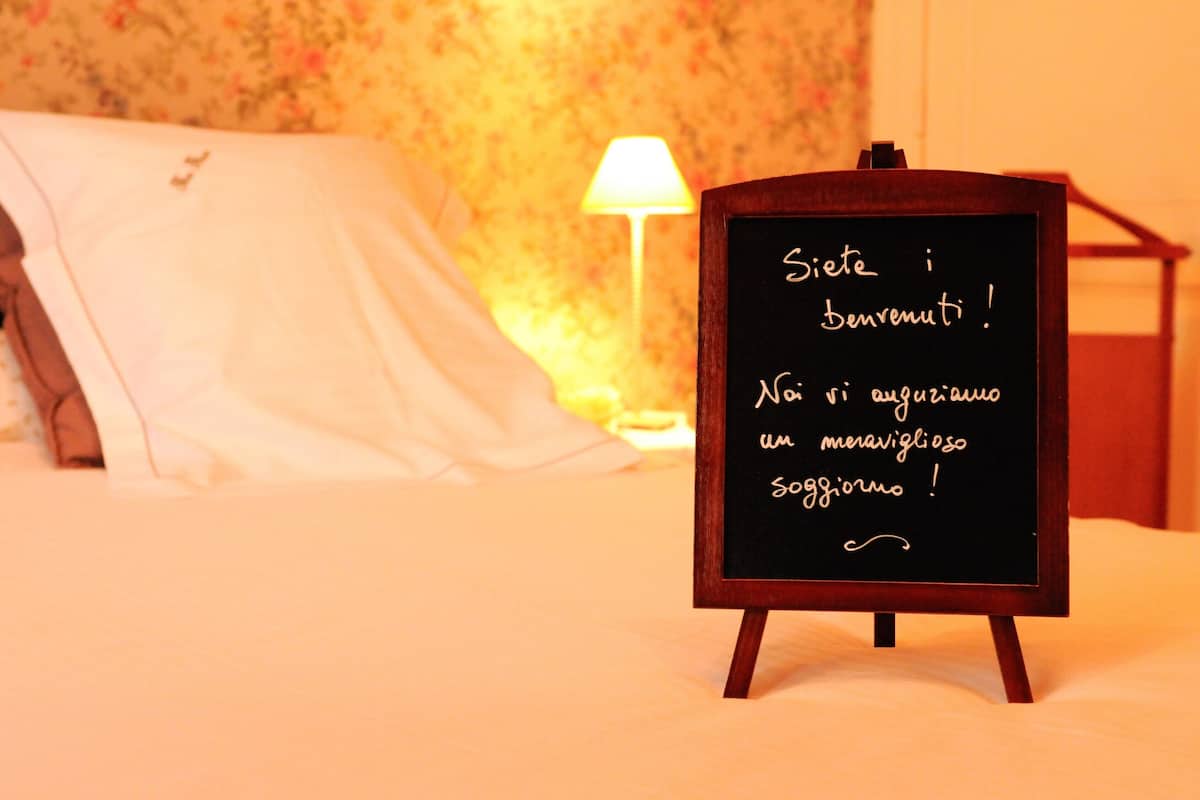 Siete i
benvenuti!
Noi vi auguriamo
un meraviglioso
soggiorno!